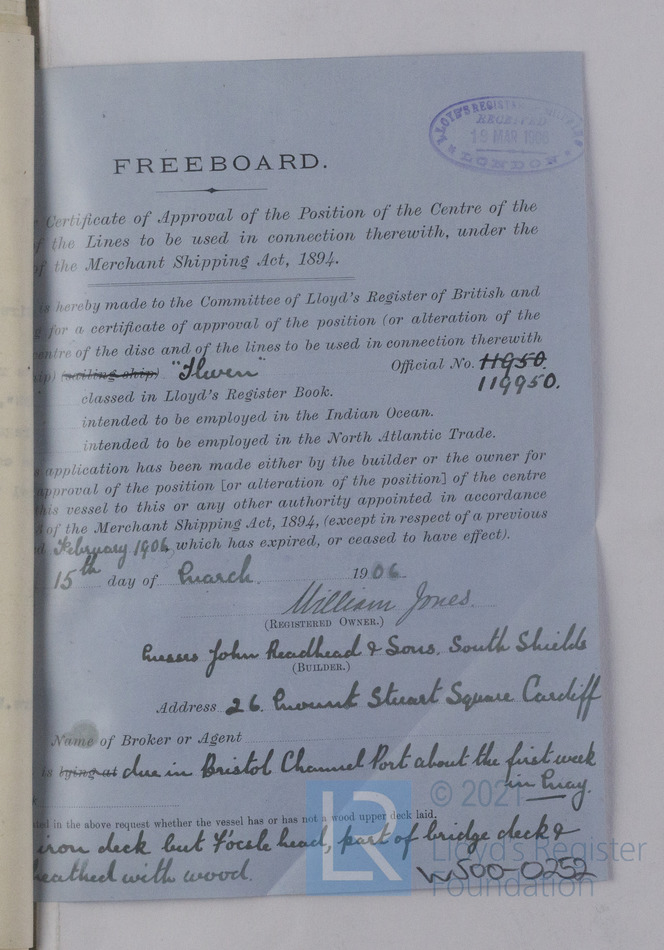 LLOYD'S REGISTER
RECEIVED
19 MAR 1906
LONDON
FREEBOARD.
Certificate of Approval of the Position of the Centre of the
of the Lines to be used in connection therewith, under the
of the Merchant Shipping Act, 1894.
is hereby made to the Committee of Lloyd's Register of British and
for a certificate of approval of the position (or alteration of the
centre of the disc and of the lines to be used in connection therewith
(sailing ship) Official No. 11950.
119950.
classed in Lloyd's Register Book.
intended to be employed in the Indian Ocean.
intended to be employed in the North Atlantic Trade.
application has been made either by the builder or the owner for
approval of the position [or alteration of the position] of the centre
this vessel to this or any other authority appointed in accordance
of the Merchant Shipping Act, 1894, (except in respect of a previous
February 1906, which has expired, or ceased to have effect).
15th day of March. 1906.
William Jones.
(REGISTERED OWNER.)
Messrs John Readhead & Sons. South Shields
(BUILDER.)
Address 26. Mount Stuart Square Cardiff
Name of Broker or Agent
is lying at due in Bristol Channel Port about the first week
in May.
in the above request whether the vessel has or has not a wood upper deck laid.
iron deck but F'ocsle head, part of bridge deck &
with wood.
© 2021
LR
Lloyd's Register
Foundation
W500-0252